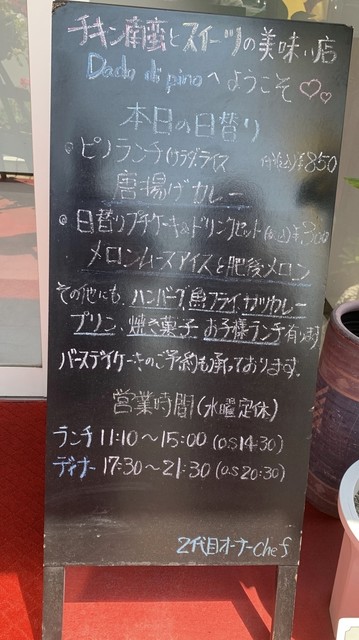 チキン南蛮とスイーツの美味い店
Dada di pinoへようこそ♡♡
本日の日替り
ピノランチ(サラダライス付)(税込)¥850
唐揚げカレー
日替りプチケーキ&ドリンクセット(税込)¥300
メロンムースアイスと肥後メロン
その他にも、ハンバーグ、魚フライ、カツカレー
プリン、焼き菓子、お子様ランチ有〼
バースデイケーキのご予約も承っております。
営業時間(水曜定休)
ランチ 11:10〜15:00(O.S14:30)
ディナー 17:30〜21:30(O.S20:30)
2代目オーナーchef